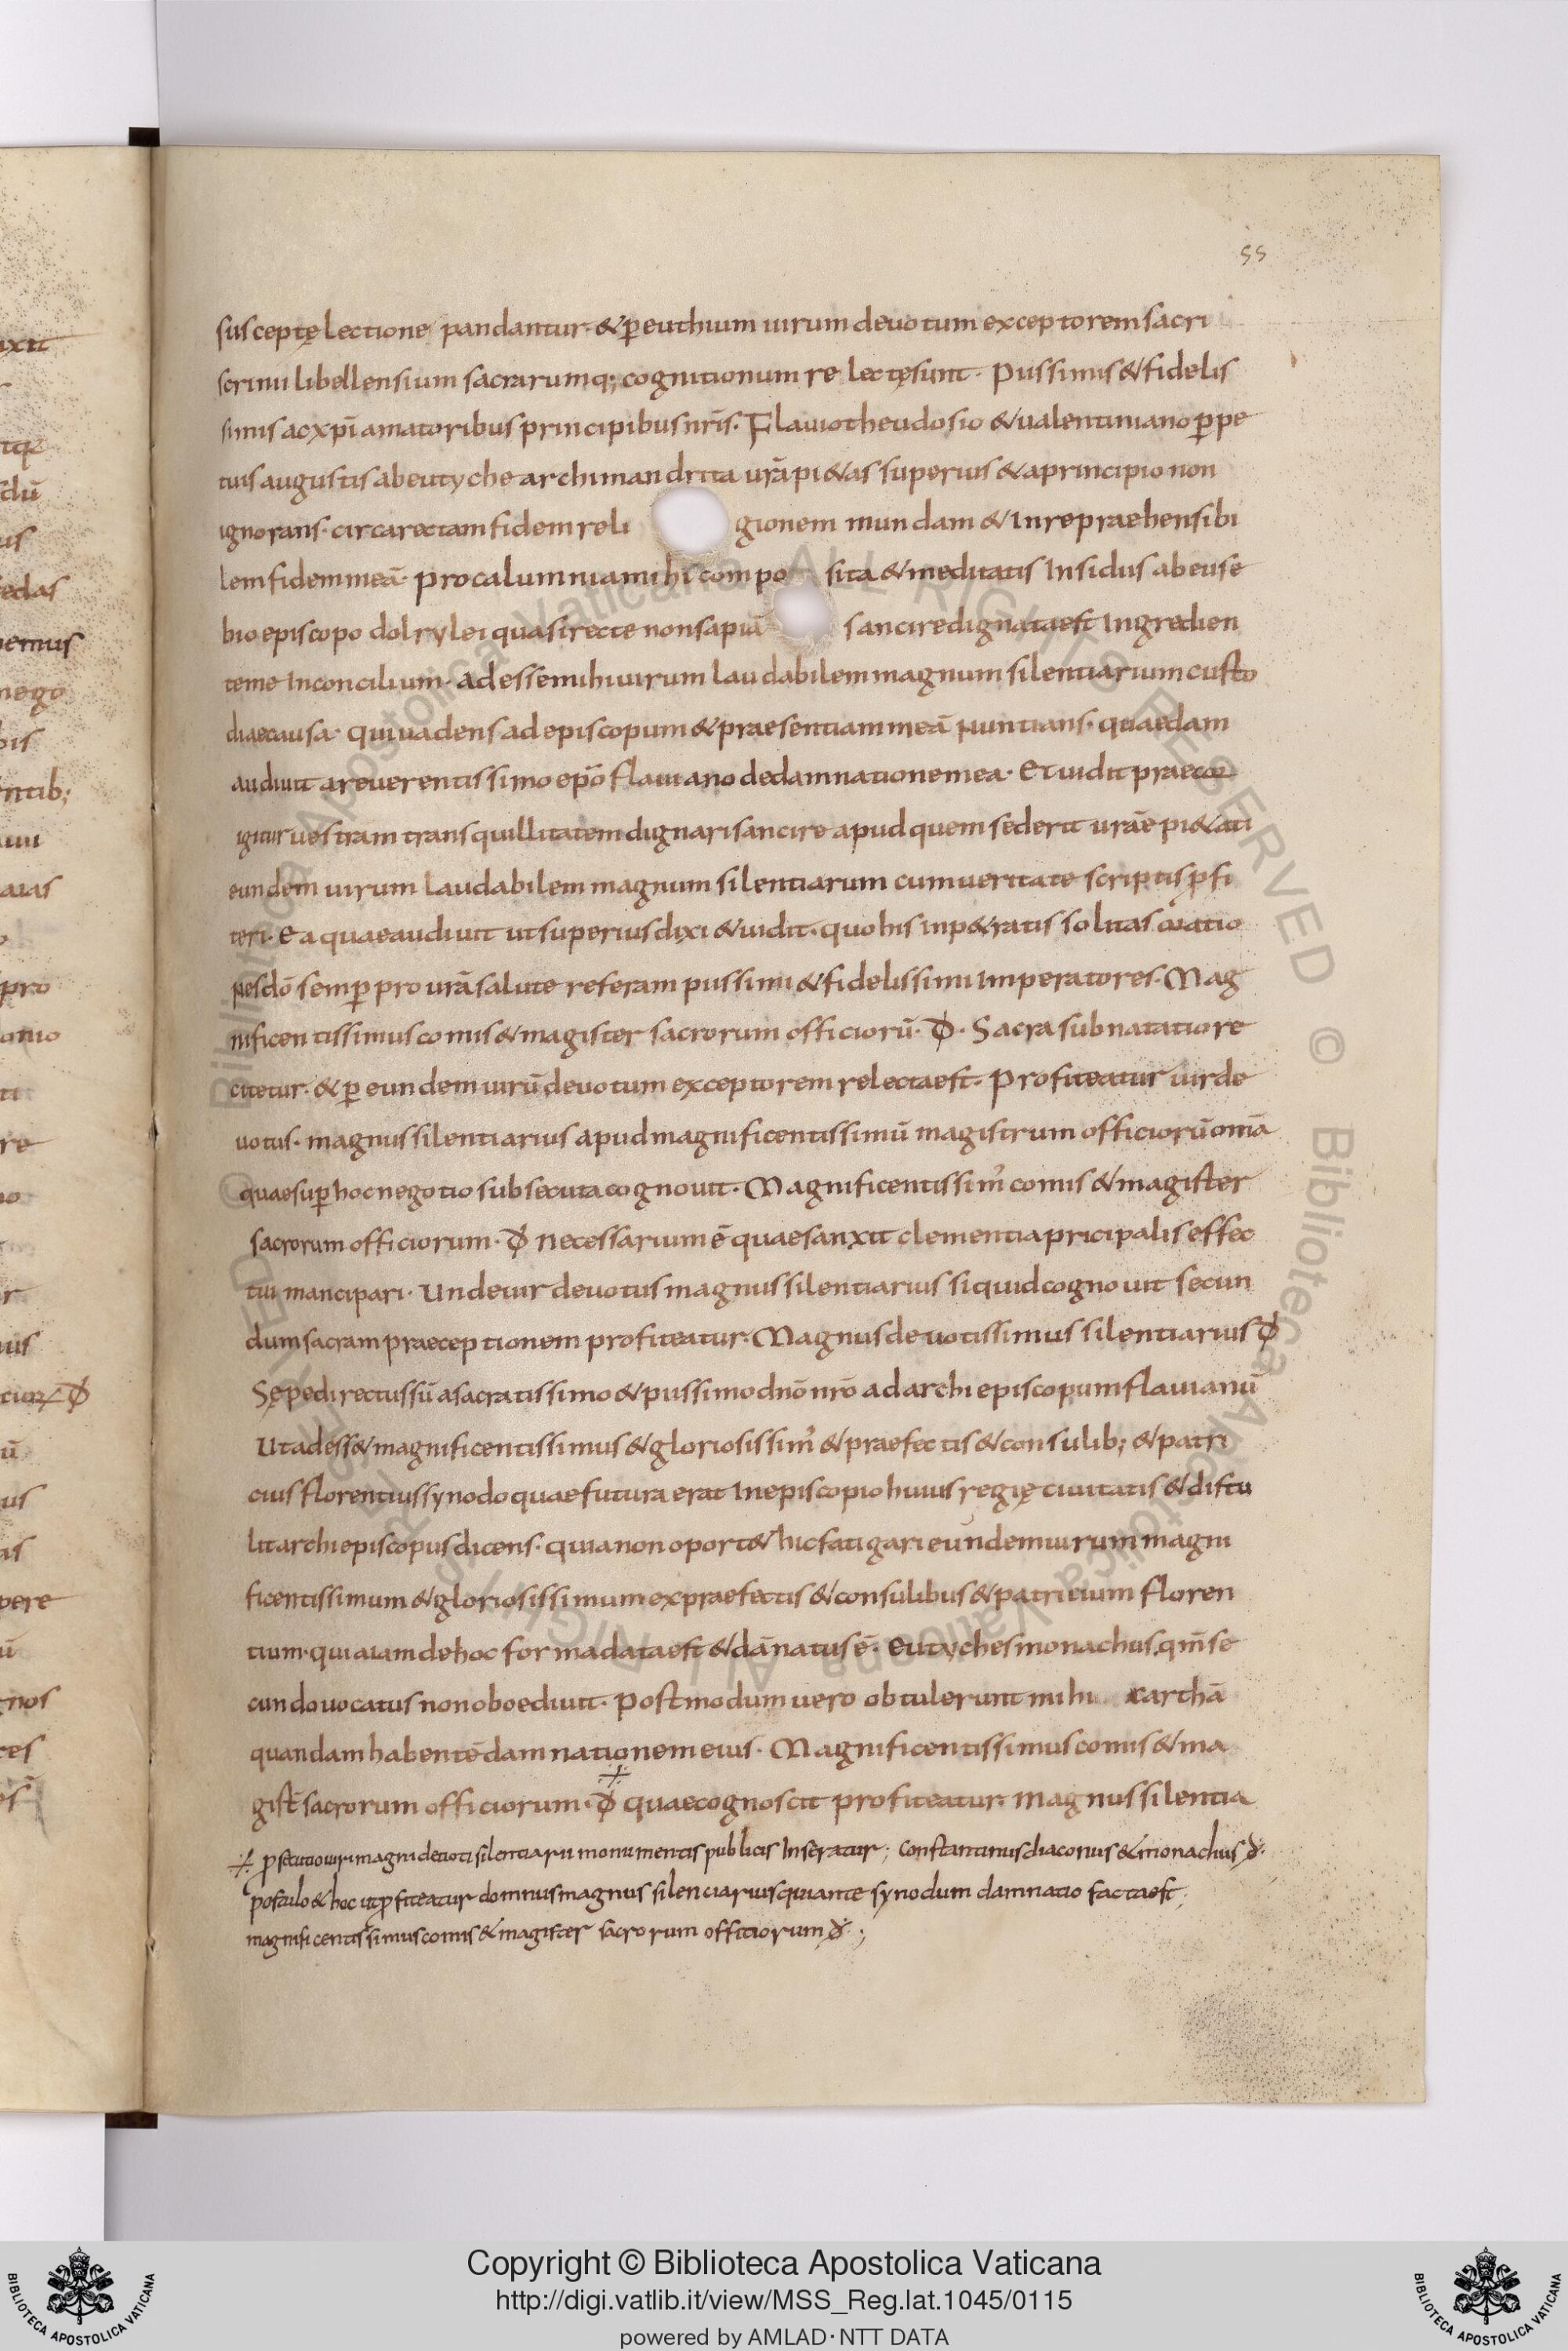 55
susceptę lectione pandantur· & ꝑ euthium uirum deuotum exceptorem sacri
scrinii libellensium sacrarumq; cognitionum relectę sunt· Piissimis & fidelis
simis ac xp̄i amatoribus principibus nr̄is· Flauio theudosio & ualentiniano ꝑpe
tuis augustis ab eutyche archimandrita ur̄a pi&as superius & a principio non
ignorans· circa rectam fidem reli gionem mundam & Inrepraehensibi
lem fidem meā· pro calumnia mihi compo sita & meditatis Insidiis ab euse
bio episcopo dolrylei quasi recte non sapiā sancire dignata est Ingredien
te me In concilium· adesse mihi uirum laudabilem magnum silentiarium custo
diae causa· qui uadens ad episcopum & praesentiam meā nuntians· quaedam
audiuit a reuerentissimo ep̄o flauiano de damnatione mea· Et uidit praecor
igitur uestram transquillitatem dignari sancire apud quem sederit ur̄ae pi&ati
eundem uirum laudabilem magnum silentiarum cum ueritate scriptis ꝓfi
teri· Ea quae audiuit ut superius dixi & uidit· quo his inp&ratis solitas oratio
nes dō semꝑ pro ur̄a salute referam piissimi & fidelissimi Imperatores· Mag
nificentissimus comis & magister sacrorum officiorū· đ· Sacra subnatatio re
citetur· & ꝑ eundem uirū deuotum exceptorem relecta est· Profiteatur uir de
uotus· magnus silentiarius apud magnificentissimū magistrum officiorū omīa
quae suꝑ hoc negotio subsecuta cognouit· Magnificentissim' comis & magister
sacrorum officiorum· đ necessarium ē quae sanxit clementia pricipalis effec
tui mancipari· Unde uir deuotus magnus silentiarius si quid cognouit secun
dum sacram praeceptionem profiteatur· Magnus deuotissimus silentiarius đ
Sępe directus sū a sacratissimo & piissimo dnō nrō ad archiepiscopum flauianū
Ut adess& magnificentissimus & gloriosissim' & praefectis & consulib; & patri
cius florentius synodo quae futura erat In episcopio huius regię ciuitatis & distu
lit archiepiscopus dicens· quia non oport& hic fatigari eundem uirum magni
ficentissimum & gloriosissimum ex praefectis & consulibus & patricium floren
tium· quia iam de hoc forma data est & dānatus ē· Eutyches monachus qm̄ se
cundo uocatus non oboediuit· Postmodum uero obtulerunt mihi carthā
quandam habentē damnationem eius· Magnificentissimus comis & ma
gist̄ sacrorum officiorum· đ quae cognoscit profiteatur· Magnus silentia
·/· ꝓsecutio uiri magni deuoti silentiarii monumentis publicis Inseratur; Constantinus diaconus & monachus đ·
postulo & hoc ut ꝓfiteatur domnus magnus silenciarius qui ante synodum damnatio facta est;
magnificentissimus comis & magister sacrorum offitiorum đ·;
Copyright © Biblioteca Apostolica Vaticana
http://digi.vatlib.it/view/MSS_Reg.lat.1045/0115
powered by AMLAD·NTT DATA